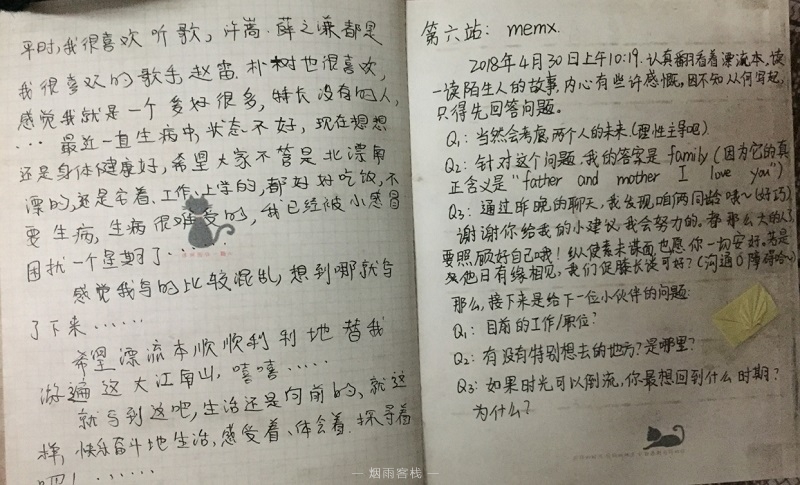 平时,我很喜欢听歌,许嵩.薛之谦都是
我很喜欢的歌手,赵雷.朴树也很喜欢,
感觉我就是一个爱好很多,特长没有的人,
… 最近一直生病中,状态不好,现在想想
还是身体健康好,希望大家不管是北漂南
漂的,还是宅着、工作、上学的,都好好吃饭,不
要生病,生病很难受的,我已经被小感冒
困扰一个星期了…
感觉我写的比较混乱,想到哪就写
了下来……
希望漂流本顺顺利利地替我
游遍这大江南山,嘻嘻……
就写到这吧,生活还是向前的,就这
样,快乐奋斗地生活,感受着、体会着.探寻着
吧!……
第六站: memx.
2018年4月30日上午10:19.认真翻看着漂流本,读
一读陌生人的故事,内心有些许感慨,因不知从何写起,
只得先回答问题。
Q1: 当然会考虑两个人的未来.(理性主导吧)
Q2: 针对这个问题.我的答案是 family (因为它的真
正含义是 "father and mother I love you")
Q3: 通过昨晚的聊天,我发现咱俩同龄哦~(好巧)
谢谢你给我的小建议,我会努力的.都那么大的人了
要照顾好自己哦! 纵使素未谋面,也愿你一切安好.若是
他日有缘相见,我们促膝长谈可好?(沟通0障碍哈~)
那么,接下来是给下一位小伙伴的问题:
Q1: 目前的工作/职位?
Q2: 有没有特别想去的地方?是哪里?
Q3: 如果时光可以倒流,你最想回到什么时期?
为什么?
— 烟雨客栈 —